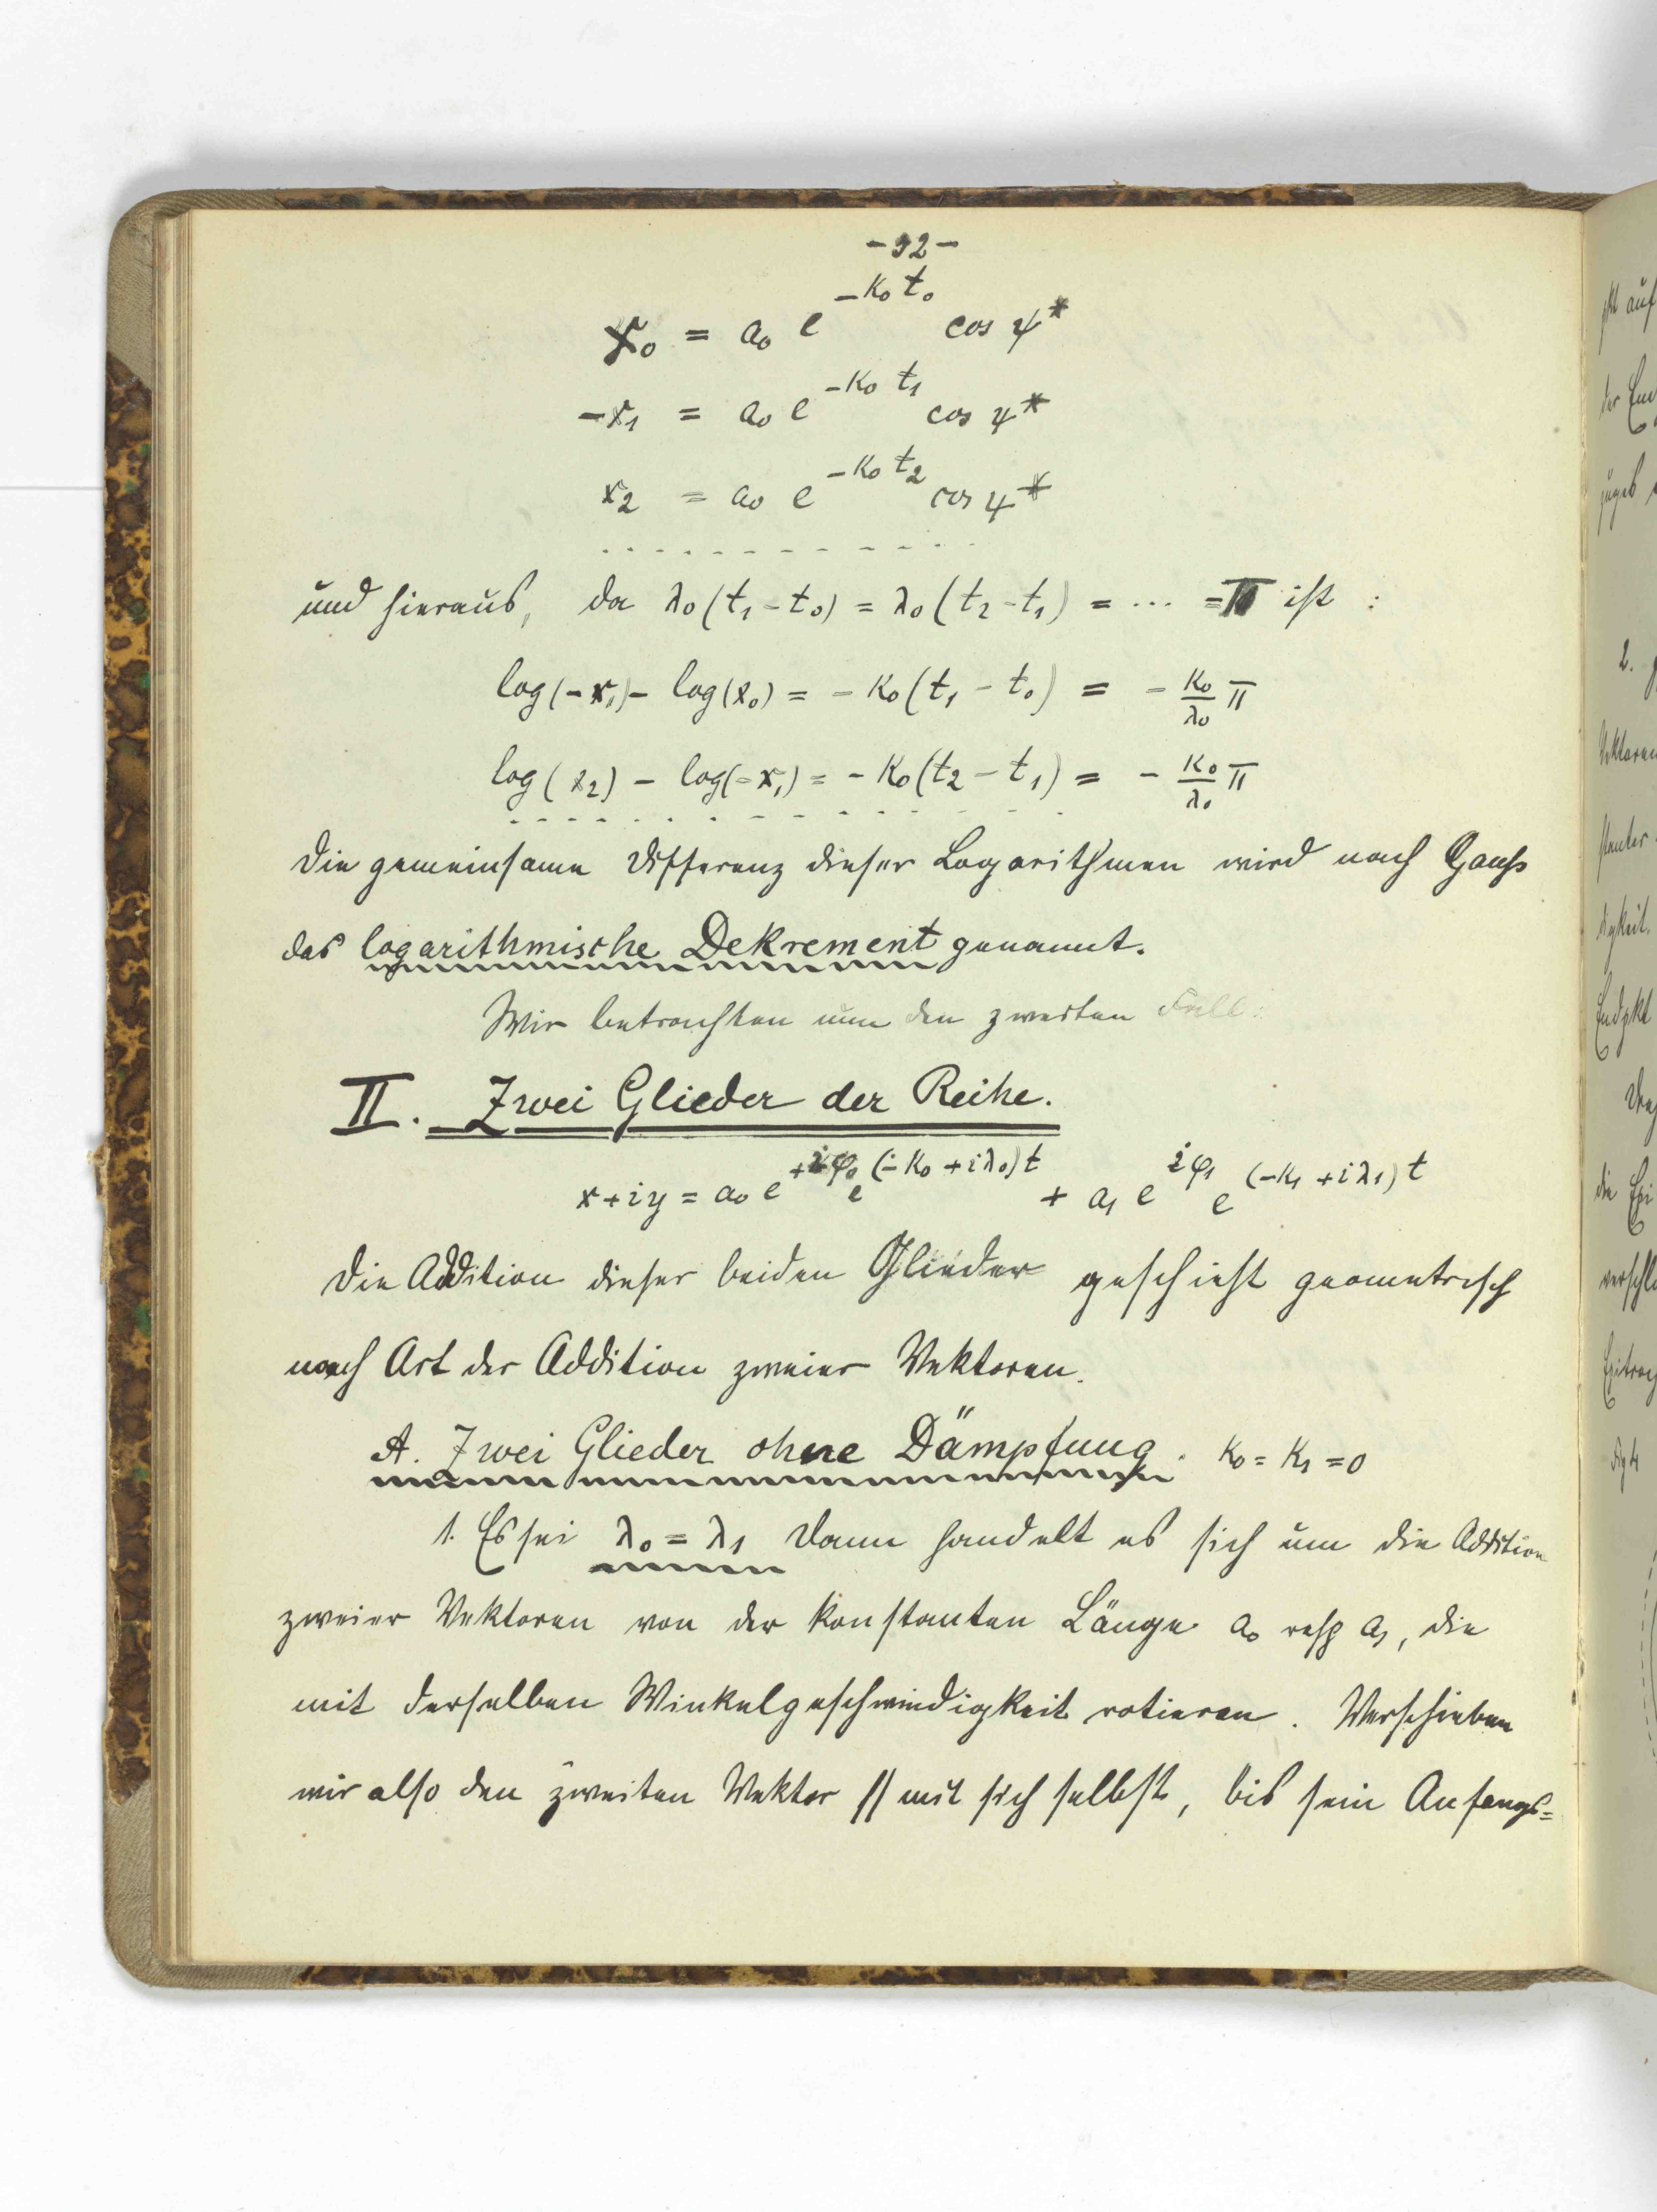 -32-
x₀ = a₀ e^{-κ₀ t₀} cos ψ*
-x₁ = a₀ e^{-κ₀ t₁} cos ψ*
x₂ = a₀ e^{-κ₀ t₂} cos ψ*
. . . . . . . . . . . .
und hieraus, da λ₀(t₁-t₀) = λ₀(t₂-t₁) = ... = π ist :
log(-x₁) - log(x₀) = -κ₀(t₁-t₀) = - κ₀/λ₀ π
log(x₂) - log(-x₁) = -κ₀(t₂-t₁) = - κ₀/λ₀ π
. . . . . . . . . . . .
Die gemeinsame Differenz dieser Logarithmen wird nach Gauß
das logarithmische Dekrement genannt.
Wir betrachten nun den zweiten Fall:
II. Zwei Glieder der Reihe.
x+iy = a₀ e^{+iφ₀} e^{(-κ₀+iλ₀)t} + a₁ e^{iφ₁} e^{(-κ₁+iλ₁)t}
Die Addition dieser beiden Glieder geschieht geometrisch
nach Art der Addition zweier Vektoren.
A. Zwei Glieder ohne Dämpfung. κ₀ = κ₁ = 0
1. Es sei λ₀ = λ₁ Dann handelt es sich um die Addition
zweier Vektoren von der konstanten Länge a₀ resp a₁, die
mit derselben Winkelgeschwindigkeit rotieren. Verschieben
wir also den zweiten Vektor // mit sich selbst, bis sein Anfangs=